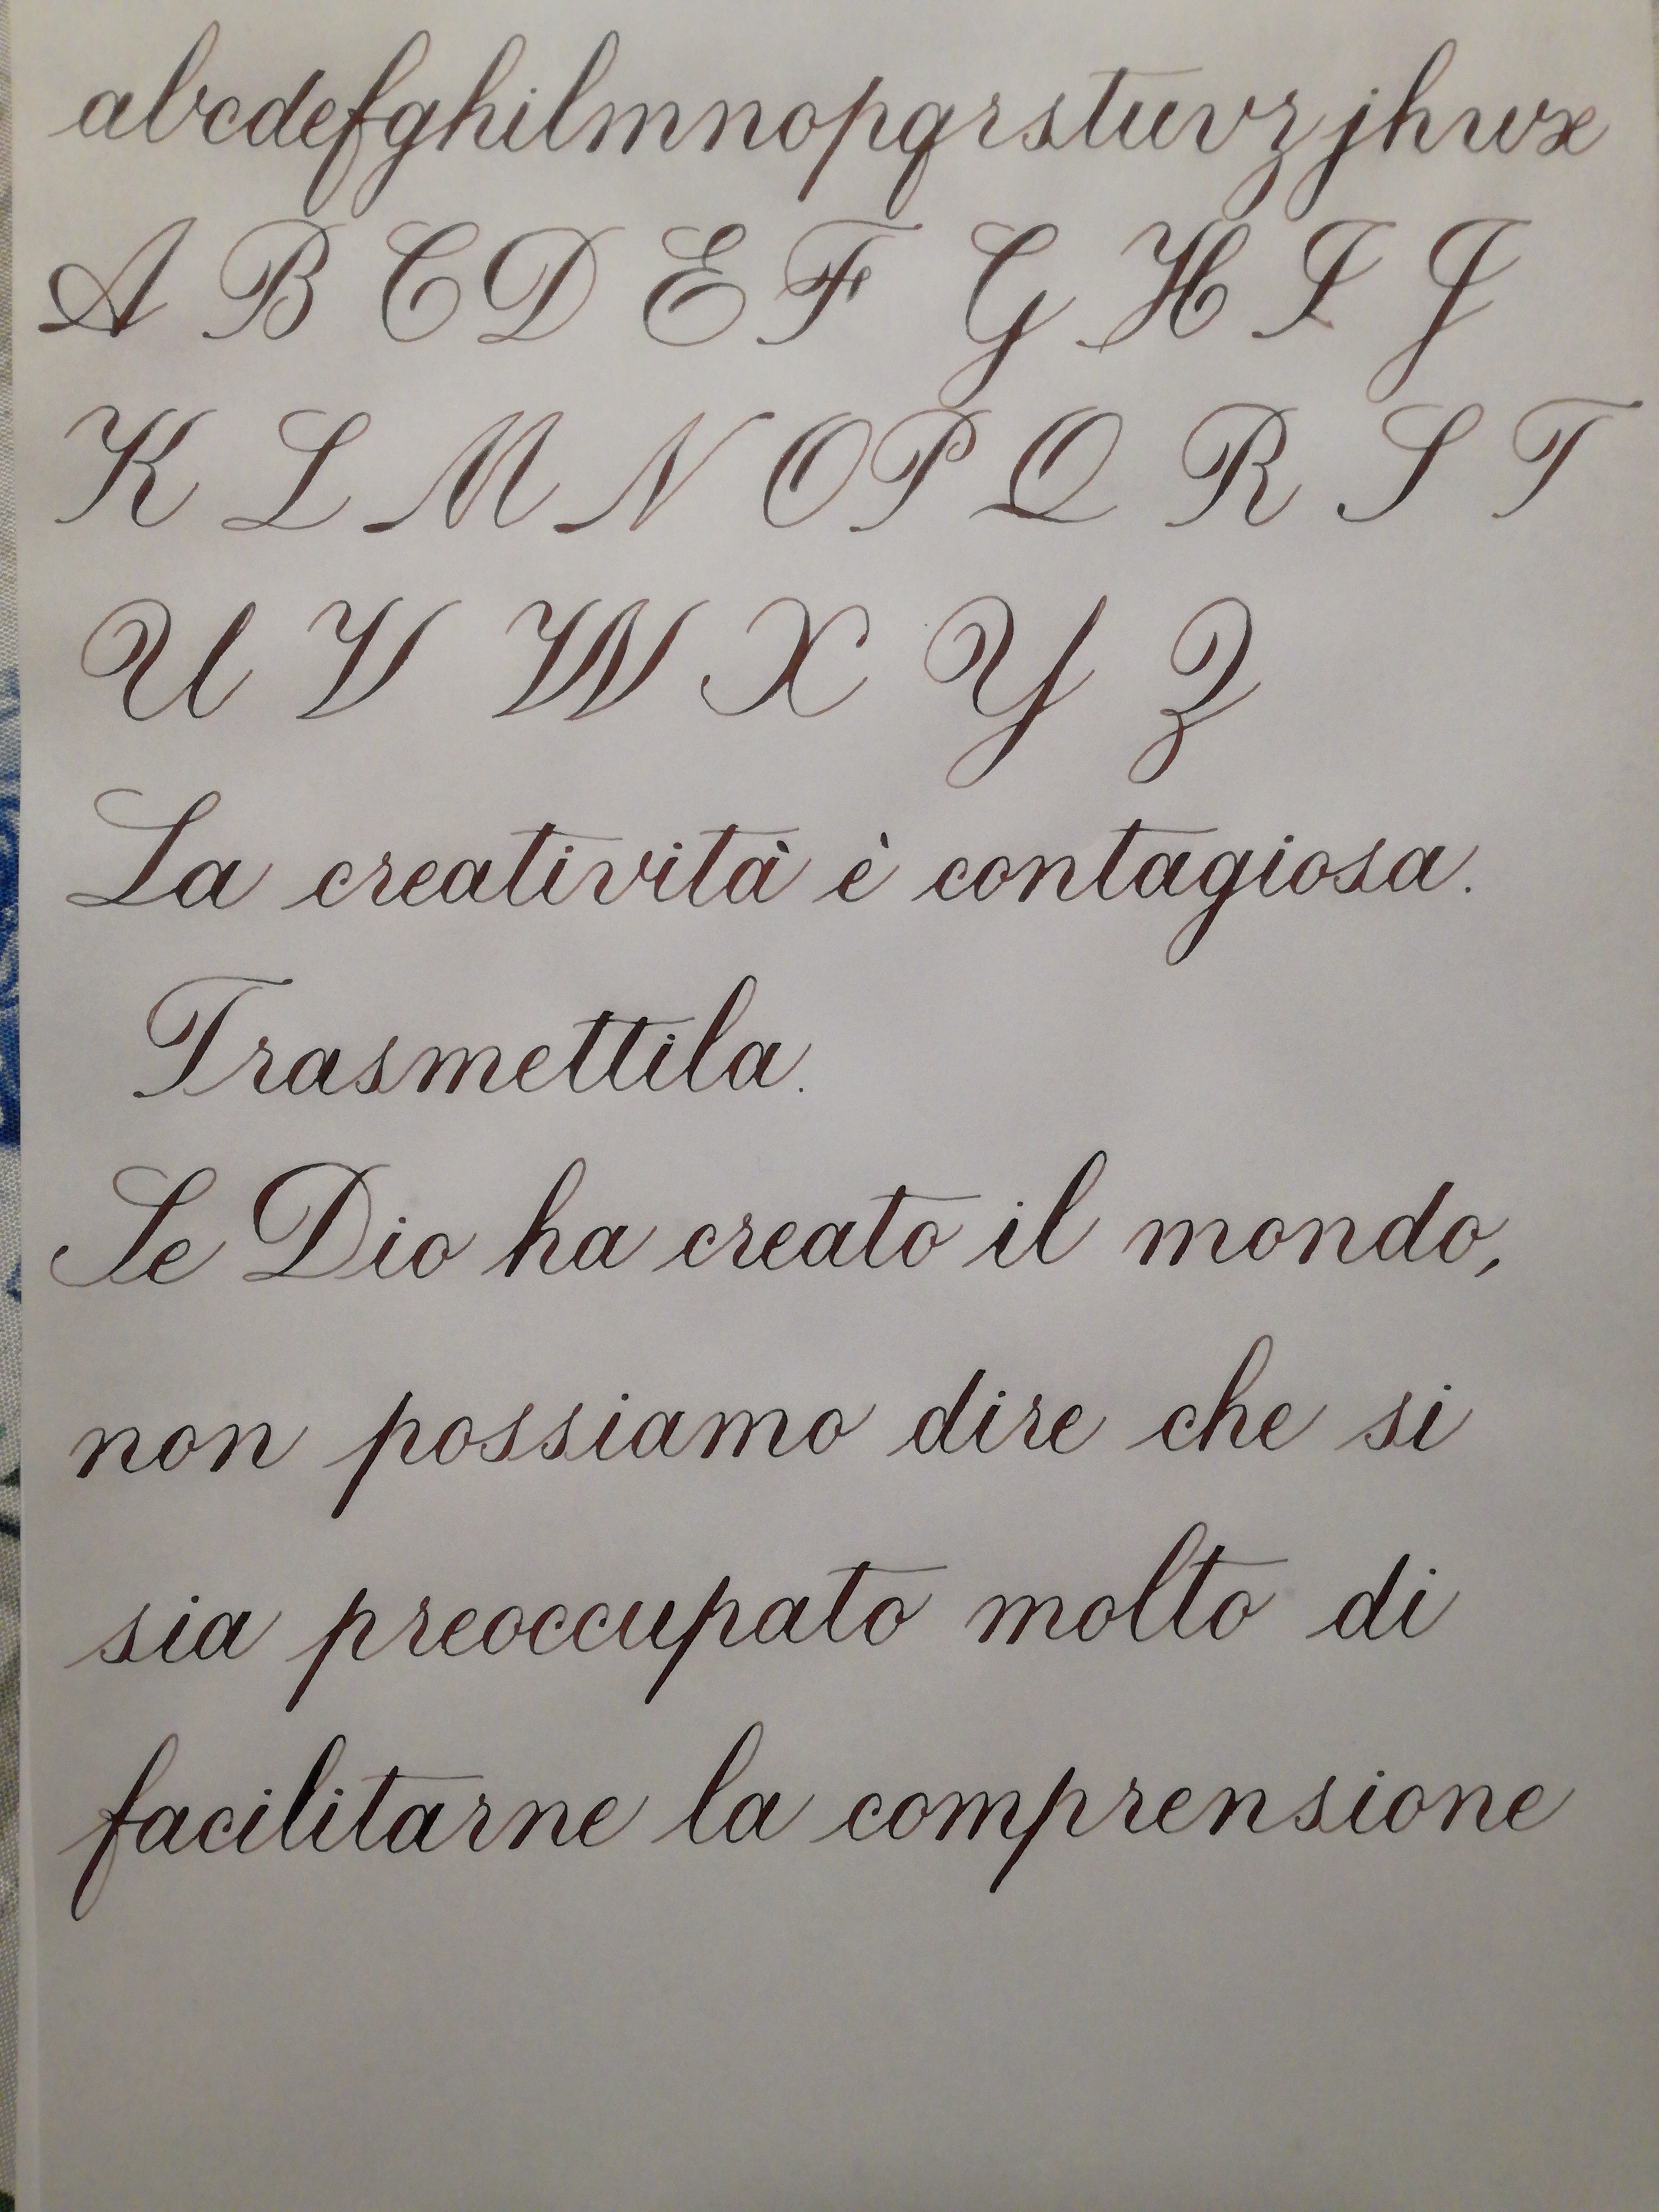 abcdefghilmnopqrstuvzjhwx
A B C D E F G H I J
K L M N O P Q R S T
U V W X Y Z
La creatività è contagiosa.
Trasmettila.
Se Dio ha creato il mondo,
non possiamo dire che si
sia preoccupato molto di
facilitarne la comprensione